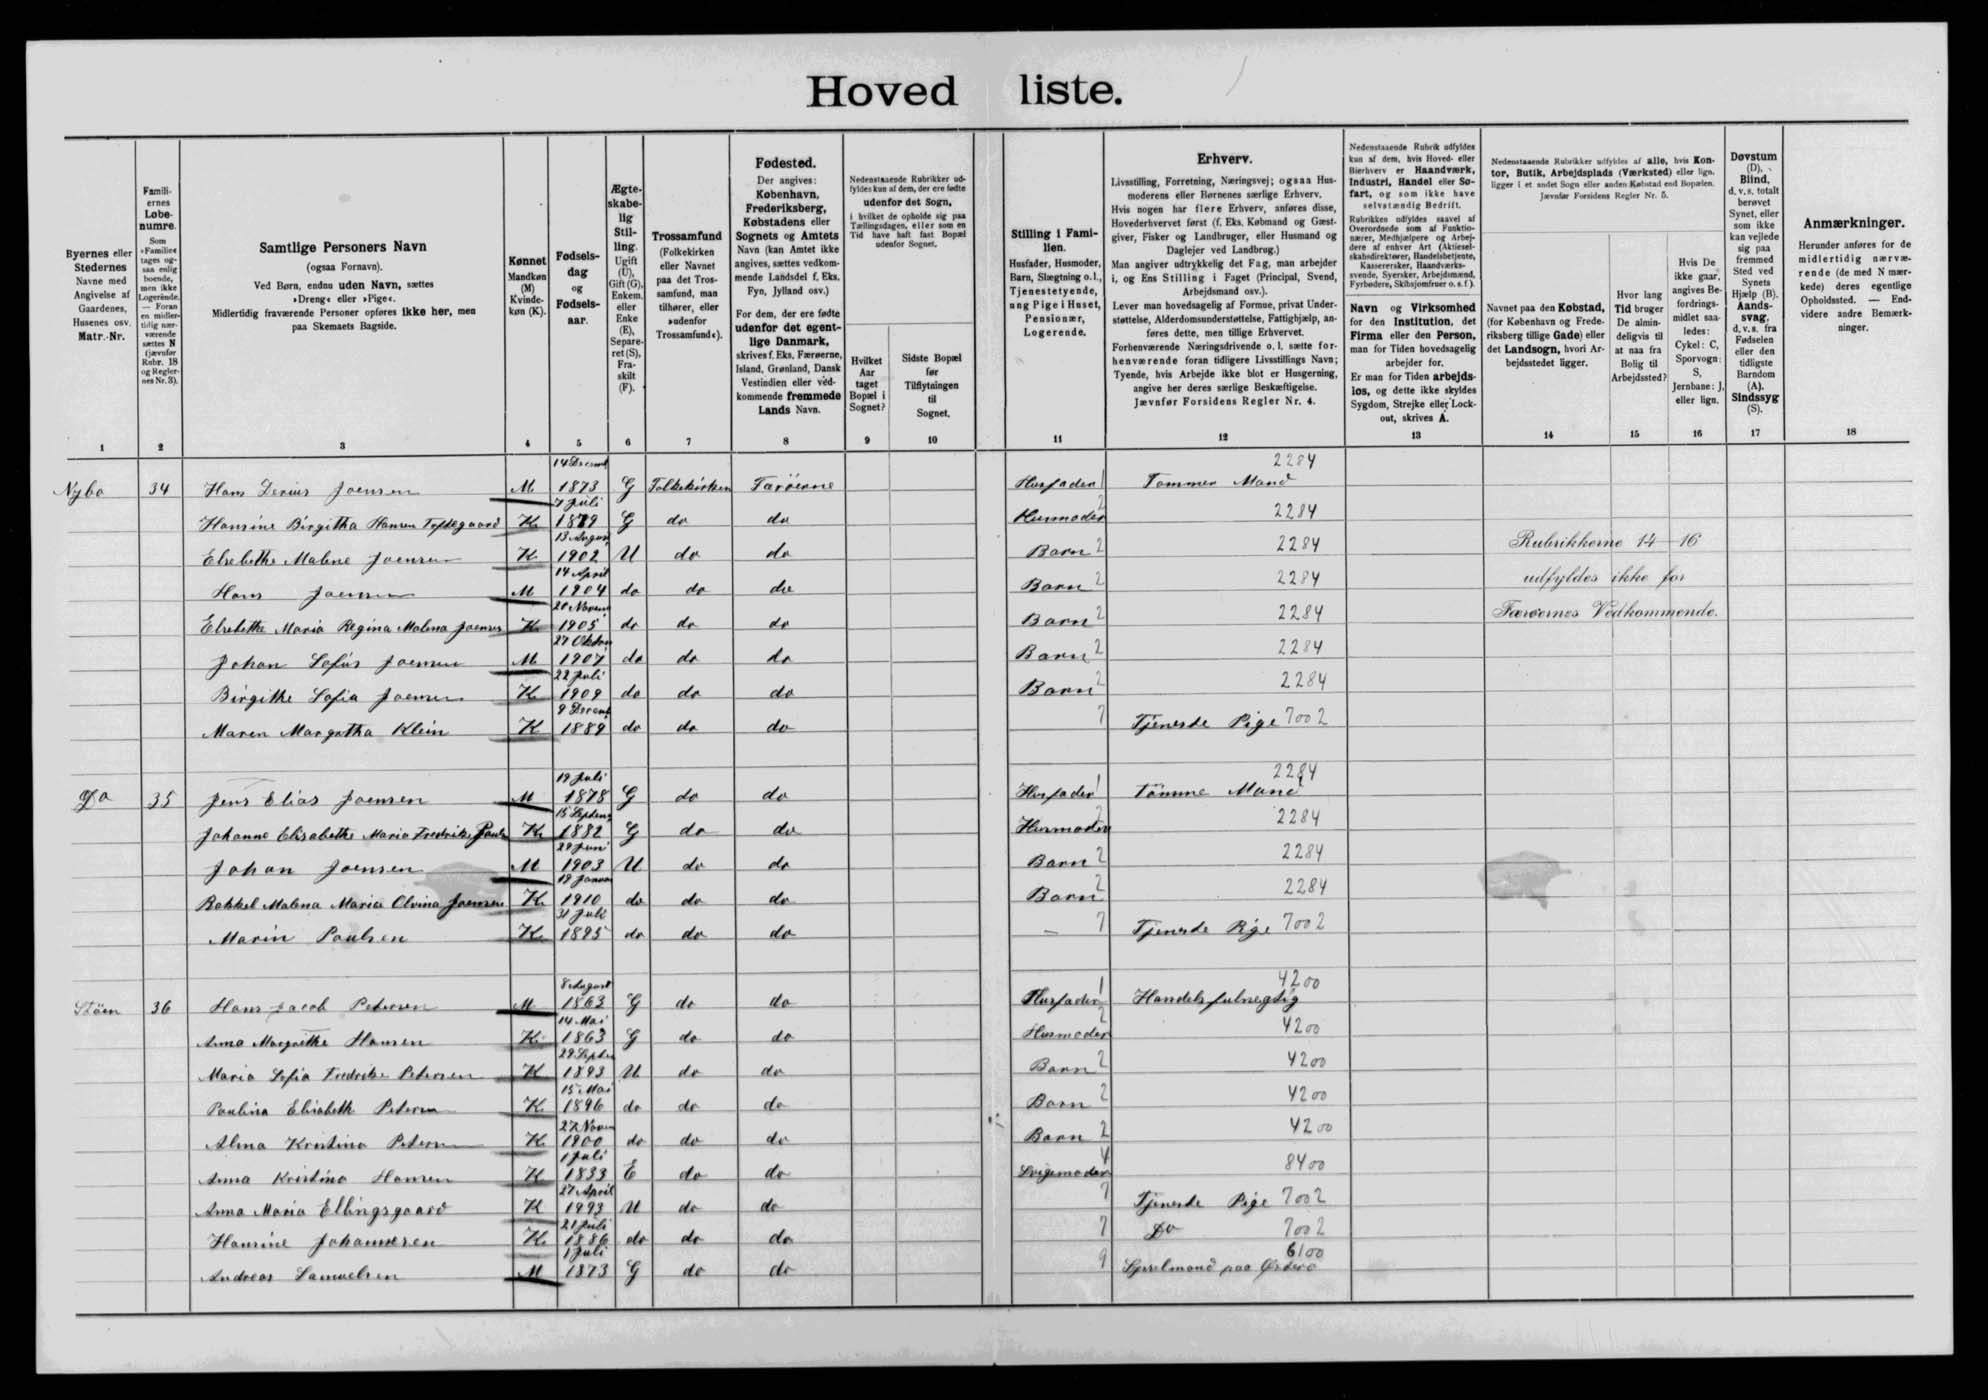 Hoved liste.
Byernes eller
Stedernes
Navne med
Angivelse af
Gaardenes,
Husenes osv.
Matr.-Nr.
1
Famili-
ernes
Løbe-
numre.
Som
»Familie«
tages og-
saa enlig
boende,
men ikke
Logerende.
— Foran
en midler-
tidig nær-
værende
sættes N
(jævnfør
Rubr. 18
og Regler-
nes Nr. 3).
2
Samtlige Personers Navn
(ogsaa Fornavn).
Ved Børn, endnu uden Navn, sættes
»Dreng« eller »Pige«.
Midlertidig fraværende Personer opføres ikke her, men
paa Skemaets Bagside.
3
Kønnet
Mandkøn
(M)
Kvinde-
køn (K).
4
Fødsels-
dag
og
Fødsels-
aar.
5
Ægte-
skabe-
lig
Stil-
ling.
Ugift
(U),
Gift (G),
Enkem.
eller
Enke
(E),
Separe-
ret (S),
Fra-
skilt
(F).
6
Trossamfund
(Folkekirken
eller Navnet
paa det Tros-
samfund, man
tilhører, eller
»udenfor
Trossamfund«).
7
Fødested.
Der angives:
København,
Frederiksberg,
Købstadens eller
Sognets og Amtets
Navn (kan Amtet ikke
angives, sættes vedkom-
mende Landsdel f. Eks.
Fyn, Jylland osv.)
For dem, der ere fødte
udenfor det egent-
lige Danmark,
skrives f. Eks. Færøerne,
Island, Grønland, Dansk
Vestindien eller ved-
kommende fremmede
Lands Navn.
8
Nedenstaaende Rubrikker ud-
fyldes kun af dem, der ere fødte
udenfor det Sogn,
i hvilket de opholde sig paa
Tællingsdagen, eller som en
Tid have haft fast Bopæl
udenfor Sognet.
Hvilket
Aar
taget
Bopæl i
Sognet?
9
Sidste Bopæl
før
Tilflytningen
til
Sognet.
10
Stilling i Fami-
lien.
Husfader, Husmoder,
Barn, Slægtning o. l.,
Tjenestetyende,
ung Pige i Huset,
Pensionær,
Logerende.
11
Erhverv.
Livsstilling, Forretning, Næringsvej; ogsaa Hus-
moderens eller Børnenes særlige Erhverv.
Hvis nogen har flere Erhverv, anføres disse,
Hovederhvervet først (f. Eks. Købmand og Gæst-
giver, Fisker og Landbruger, eller Husmand og
Daglejer ved Landbrug.)
Man angiver udtrykkelig det Fag, man arbejder
i, og Ens Stilling i Faget (Principal, Svend,
Arbejdsmand osv.).
Lever man hovedsagelig af Formue, privat Under-
støttelse, Alderdomsunderstøttelse, Fattighjælp, an-
føres dette, men tillige Erhvervet.
Forhenværende Næringsdrivende o. l. sætte for-
henværende foran tidligere Livsstillings Navn;
Tyende, hvis Arbejde ikke blot er Husgerning,
angive her deres særlige Beskæftigelse.
Jævnfør Forsidens Regler Nr. 4.
12
Nedenstaaende Rubrik udfyldes
kun af dem, hvis Hoved- eller
Bierhverv er Haandværk,
Industri, Handel eller Sø-
fart, og som ikke have
selvstændig Bedrift.
Rubrikken udfyldes saavel af
Overordnede som af Funktio-
nærer, Medhjælpere og Arbej-
dere af enhver Art (Aktiesel-
skabsdirektører, Handelsbetjente,
Kasserersker, Haandværks-
svende, Syersker, Arbejdsmænd,
Fyrbødere, Skibsjomfruer o. s. f.).
Navn og Virksomhed
for den Institution, det
Firma eller den Person,
man for Tiden hovedsagelig
arbejder for.
Er man for Tiden arbejds-
løs, og dette ikke skyldes
Sygdom, Strejke eller Lock-
out, skrives A.
13
Nedenstaaende Rubrikker udfyldes af alle, hvis Kon-
tor, Butik, Arbejdsplads (Værksted) eller lign.
ligger i et andet Sogn eller anden Købstad end Bopælen.
Jævnfør Forsidens Regler Nr. 5.
Navnet paa den Købstad,
(for København og Frede-
riksberg tillige Gade) eller
det Landsogn, hvori Ar-
bejdsstedet ligger.
14
Hvor lang
Tid bruger
De almin-
deligvis til
at naa fra
Bolig til
Arbejdssted?
15
Hvis De
ikke gaar,
angives Be-
fordrings-
midlet saa-
ledes:
Cykel: C,
Sporvogn:
S,
Jernbane: J,
eller lign.
16
Døvstum
(D),
Blind,
d. v. s. totalt
berøvet
Synet, eller
som ikke
kan vejlede
sig paa
fremmed
Sted ved
Synets
Hjælp (B).
Aands-
svag,
d. v. s. fra
Fødselen
eller den
tidligste
Barndom
(A).
Sindssyg
(S).
17
Anmærkninger.
Herunder anføres for de
midlertidig nærvæ-
rende (de med N mær-
kede) deres egentlige
Opholdssted. — End-
videre andre Bemærk-
ninger.
18
Nybo 34 Hans Derius Joensen M 14 Decemb 1873 G Folkekirken Farøerne Husfader 1 Tommer Mand 2284
Hansine Birgitha Hansen Toftegaard K 7 Juli 1879 G do do Husmoder 2 2284
Elsebethe Malene Joensen K 13 August 1902 U do do Barn 2 2284 Rubrikkerne 14-16
Hans Joensen M 14 April 1904 do do do Barn 2 2284 udfyldes ikke for
Elsebethe Maria Regina Malena Joensen K 20 Novem 1905 do do do Barn 2 2284 Færøernes Vedkommende.
Johan Sofus Joensen M 27 Oktober 1907 do do do Barn 2 2284
Birgithe Sofia Joensen K 22 Juli 1909 do do do Barn 2 2284
Maren Margretha Klein K 9 Decemb 1889 do do do 7 Tjeneste Pige 7002
Do 35 Jens Elias Joensen M 19 Juli 1878 G do do Husfader 1 Tömme Mand 2284
Johanne Elisabethe Maria Fredrikke Pauls K 15 Septemb 1882 G do do Husmoder 2 2284
Johan Joensen M 29 Juni 1903 U do do Barn 2 2284
Rakkel Malena Maria Olvina Joensen K 19 Janua 1910 do do do Barn 2 2284
Marin Paulsen K 31 Juli 1895 do do do — 7 Tjeneste Pige 7002
Stöen 36 Hans Jacob Petersen M 8 August 1863 G do do Husfader 1 Handelsfulmegtig 4200
Anna Margrethe Hansen K 14 Mai 1863 G do do Husmoder 2 4200
Maria Sofia Fredrikke Petersen K 29 Septbr 1893 U do do Barn 2 4200
Paulina Elisabeth Petersen K 15 Mai 1896 do do do Barn 2 4200
Alma Kristina Petersen K 27 Novem 1900 do do do Barn 2 4200
Anna Kristina Hansen K 1 Juli 1833 E do do Svigemoder 4 8400
Anna Maria Ellingsgaard K 27 April 1893 U do do 7 Tjeneste Pige 7002
Hansine Johannesen K 21 Juli 1886 do do do 7 Do 7002
Andreas Samuelsen M 1 Juli 1873 G do do 9 Syselmand paa Østerø 6100